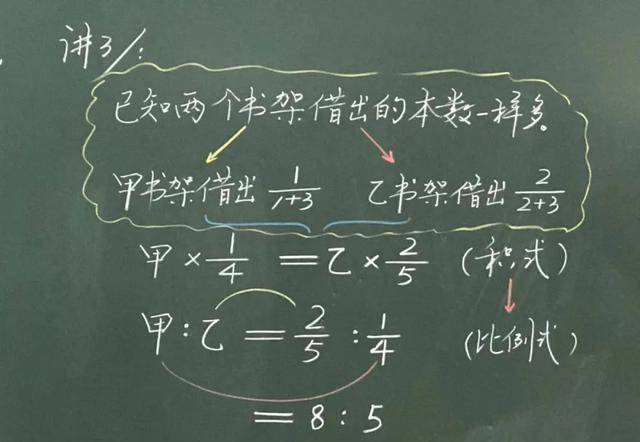 讲3/:
已知两个书架借出的本数一样多。
甲书架借出 1/(1+3) 乙书架借出 2/(2+3)
甲 × 1/4 = 乙 × 2/5 (积式)
甲 : 乙 = 2/5 : 1/4 (比例式)
= 8 : 5